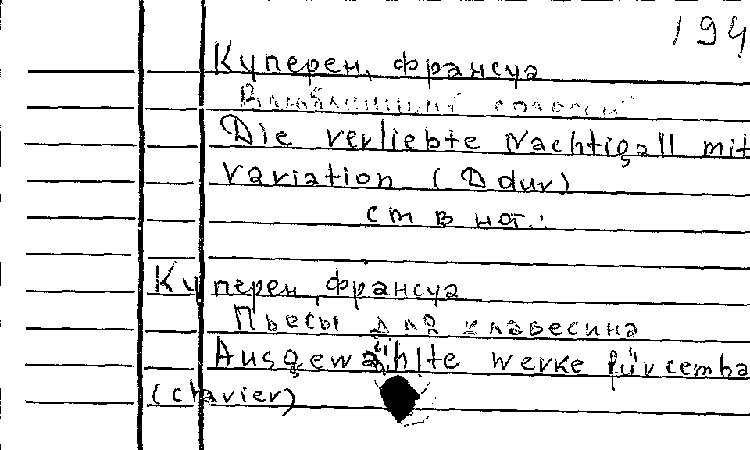 194
Куперен, франсуа
Влюбленный соловей
Die verliebte Nachtigall mit
variation (D dur)
см в нот.:
Куперен, франсуа
Пьесы для клавесина
Ausgewählte werke für cemba
(clavier)